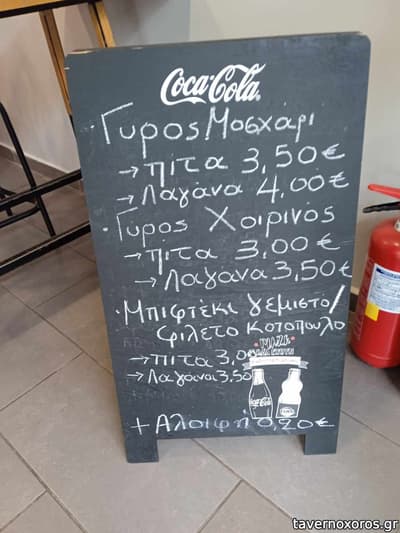 Coca-Cola
· Γυρος Μοσχάρι
→ πιτα 3,50€
→ Λαγάνα 4,00€
· Γυρος Χοιρινός
→ πίτα 3,00€
→ Λαγανα 3,50€
· Μπιφτέκι γεμιστο/
φιλετο κοτοπουλο
→ πιτα 3,00
→ Λαγάνα 3,50
ΜΑΖΙ
Coca-Cola
+ Αλοιφή 0,20€
tavernoxoros.gr